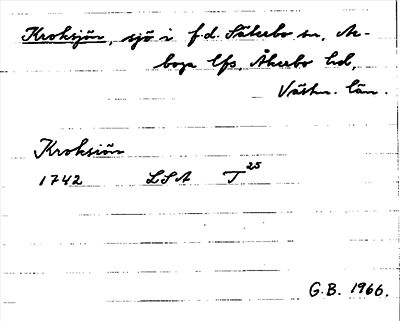 Kroksjön, sjö i f.d. Säterbo sn, Ar-
boga lfs, Åkerbo hd,
Västm. län.
Kroksiön
1742 LSA T 25
G.B. 1966.